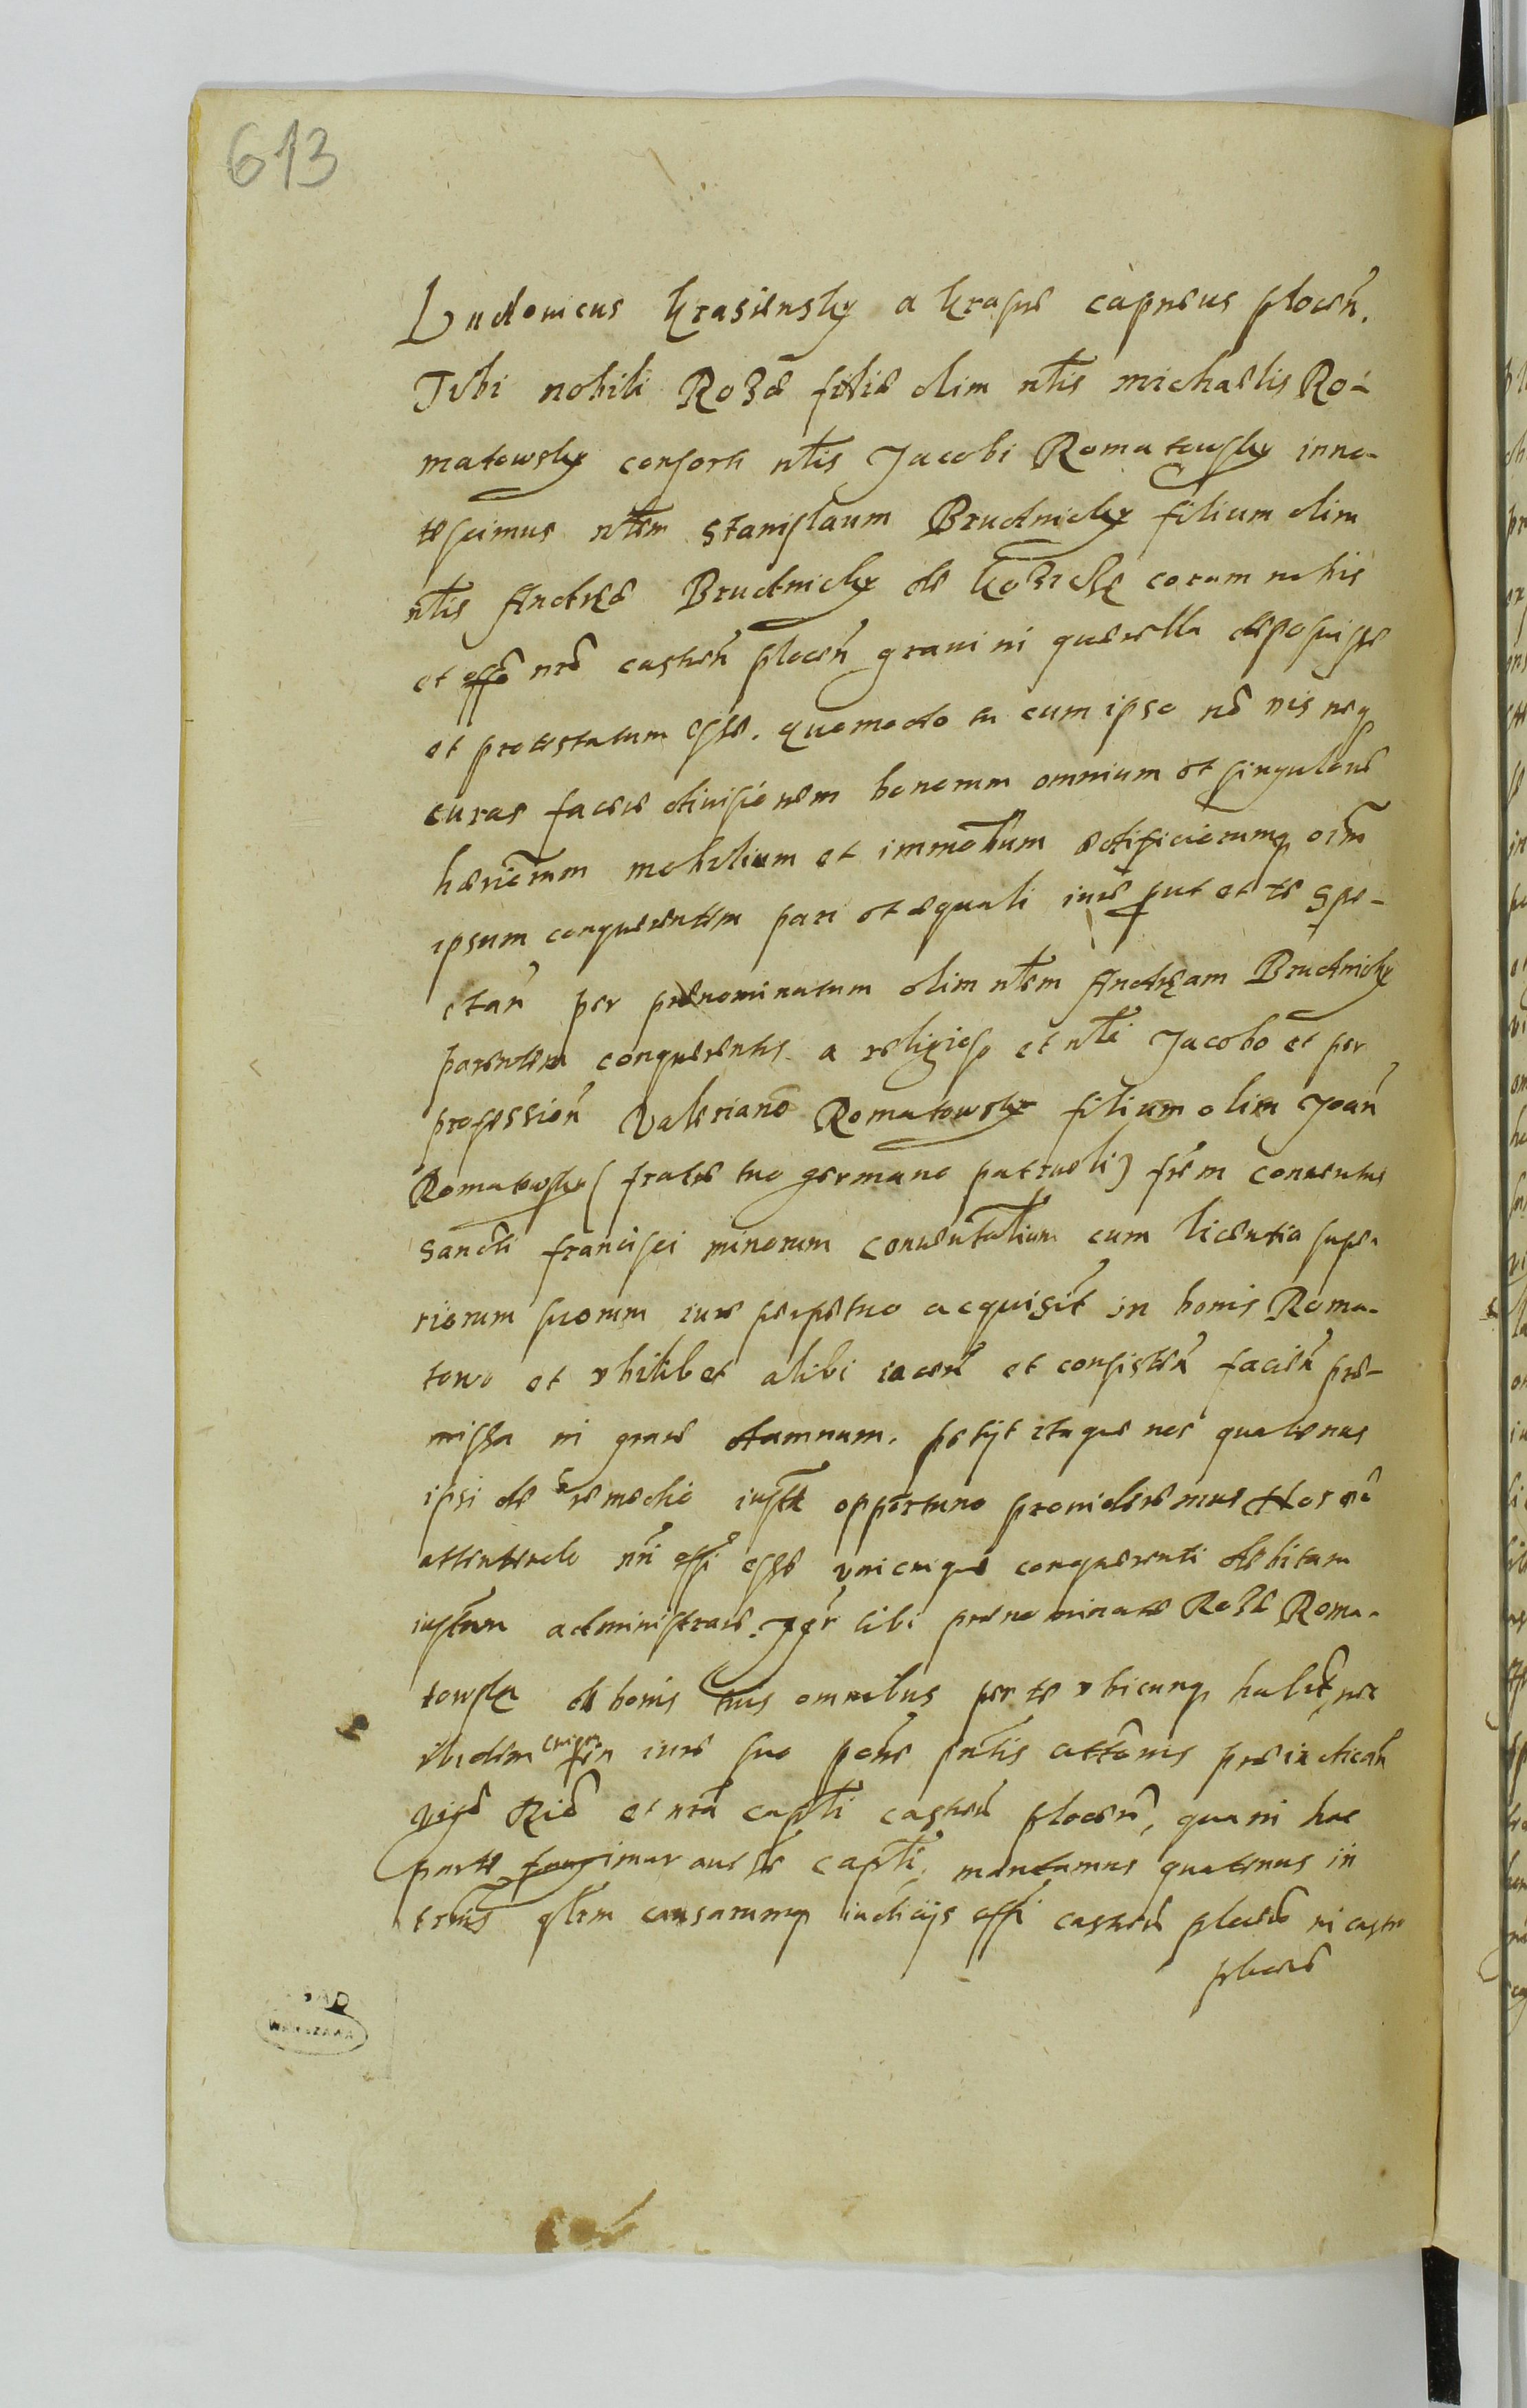 613
Ludouicus Krasiensky a Krasne capneus plocen̄.
Tibi nobili Roze filie olim nlis Michaelis Ro-
matowsky consorti nlis Jacobi Romatowsky inno-
tescimus nlem Stanislaum Brudnicky filium olim
nlis Andree Brudnicky de coram nobis
et offo nro castren̄ plocen̄ graui in querella deposuisse
et protestatum esse. quomodo tu cum ipso nō vis neq
curas facere diuisionem bonorum omnium et singulorū
haeriorum mobilium et immobilium edificiorumq oīm
ipsum conquerentem pari et equali iure put et te spe-
ctan̄ per prenominatum olim nlem Andream Brudnicky
parentem conquerentis a religioso et nli Jacobo et per
profession̄ Valeriano Romatowsky filium olim Joan̄
Romatowsky (fratre tuo germano patrueli) frem conuentus
Sancti Francisci minorum conuentualium cum licentia supe-
riorum suorum iure perpetuo acquisit in bonis Roma-
towo et vbilibet alibi iacen̄ et consisten̄ facien̄ pre-
missa in graue damnum. petijt itaque nos quatenus
ipsi de remedio iusti opportuno prouideremus Nos
attentendo nri offi esse vnicuique conquerenti debitam
iustitiam administrare. Igr tibi prenominate Roze Roma-
towska de bonis tuis omnibus per te vbicunq habit, nec
ibidem in iure suo pntis attonis preiudican̄
et nra capli castren̄ plocen̄, qua in hac
parte fungimur aucte capli, mandamus quatenus in
trmis qlem causarumq iudicijs offi castren̄ plocen̄ in castro
plocen̄
AGAD
WARSZAWA